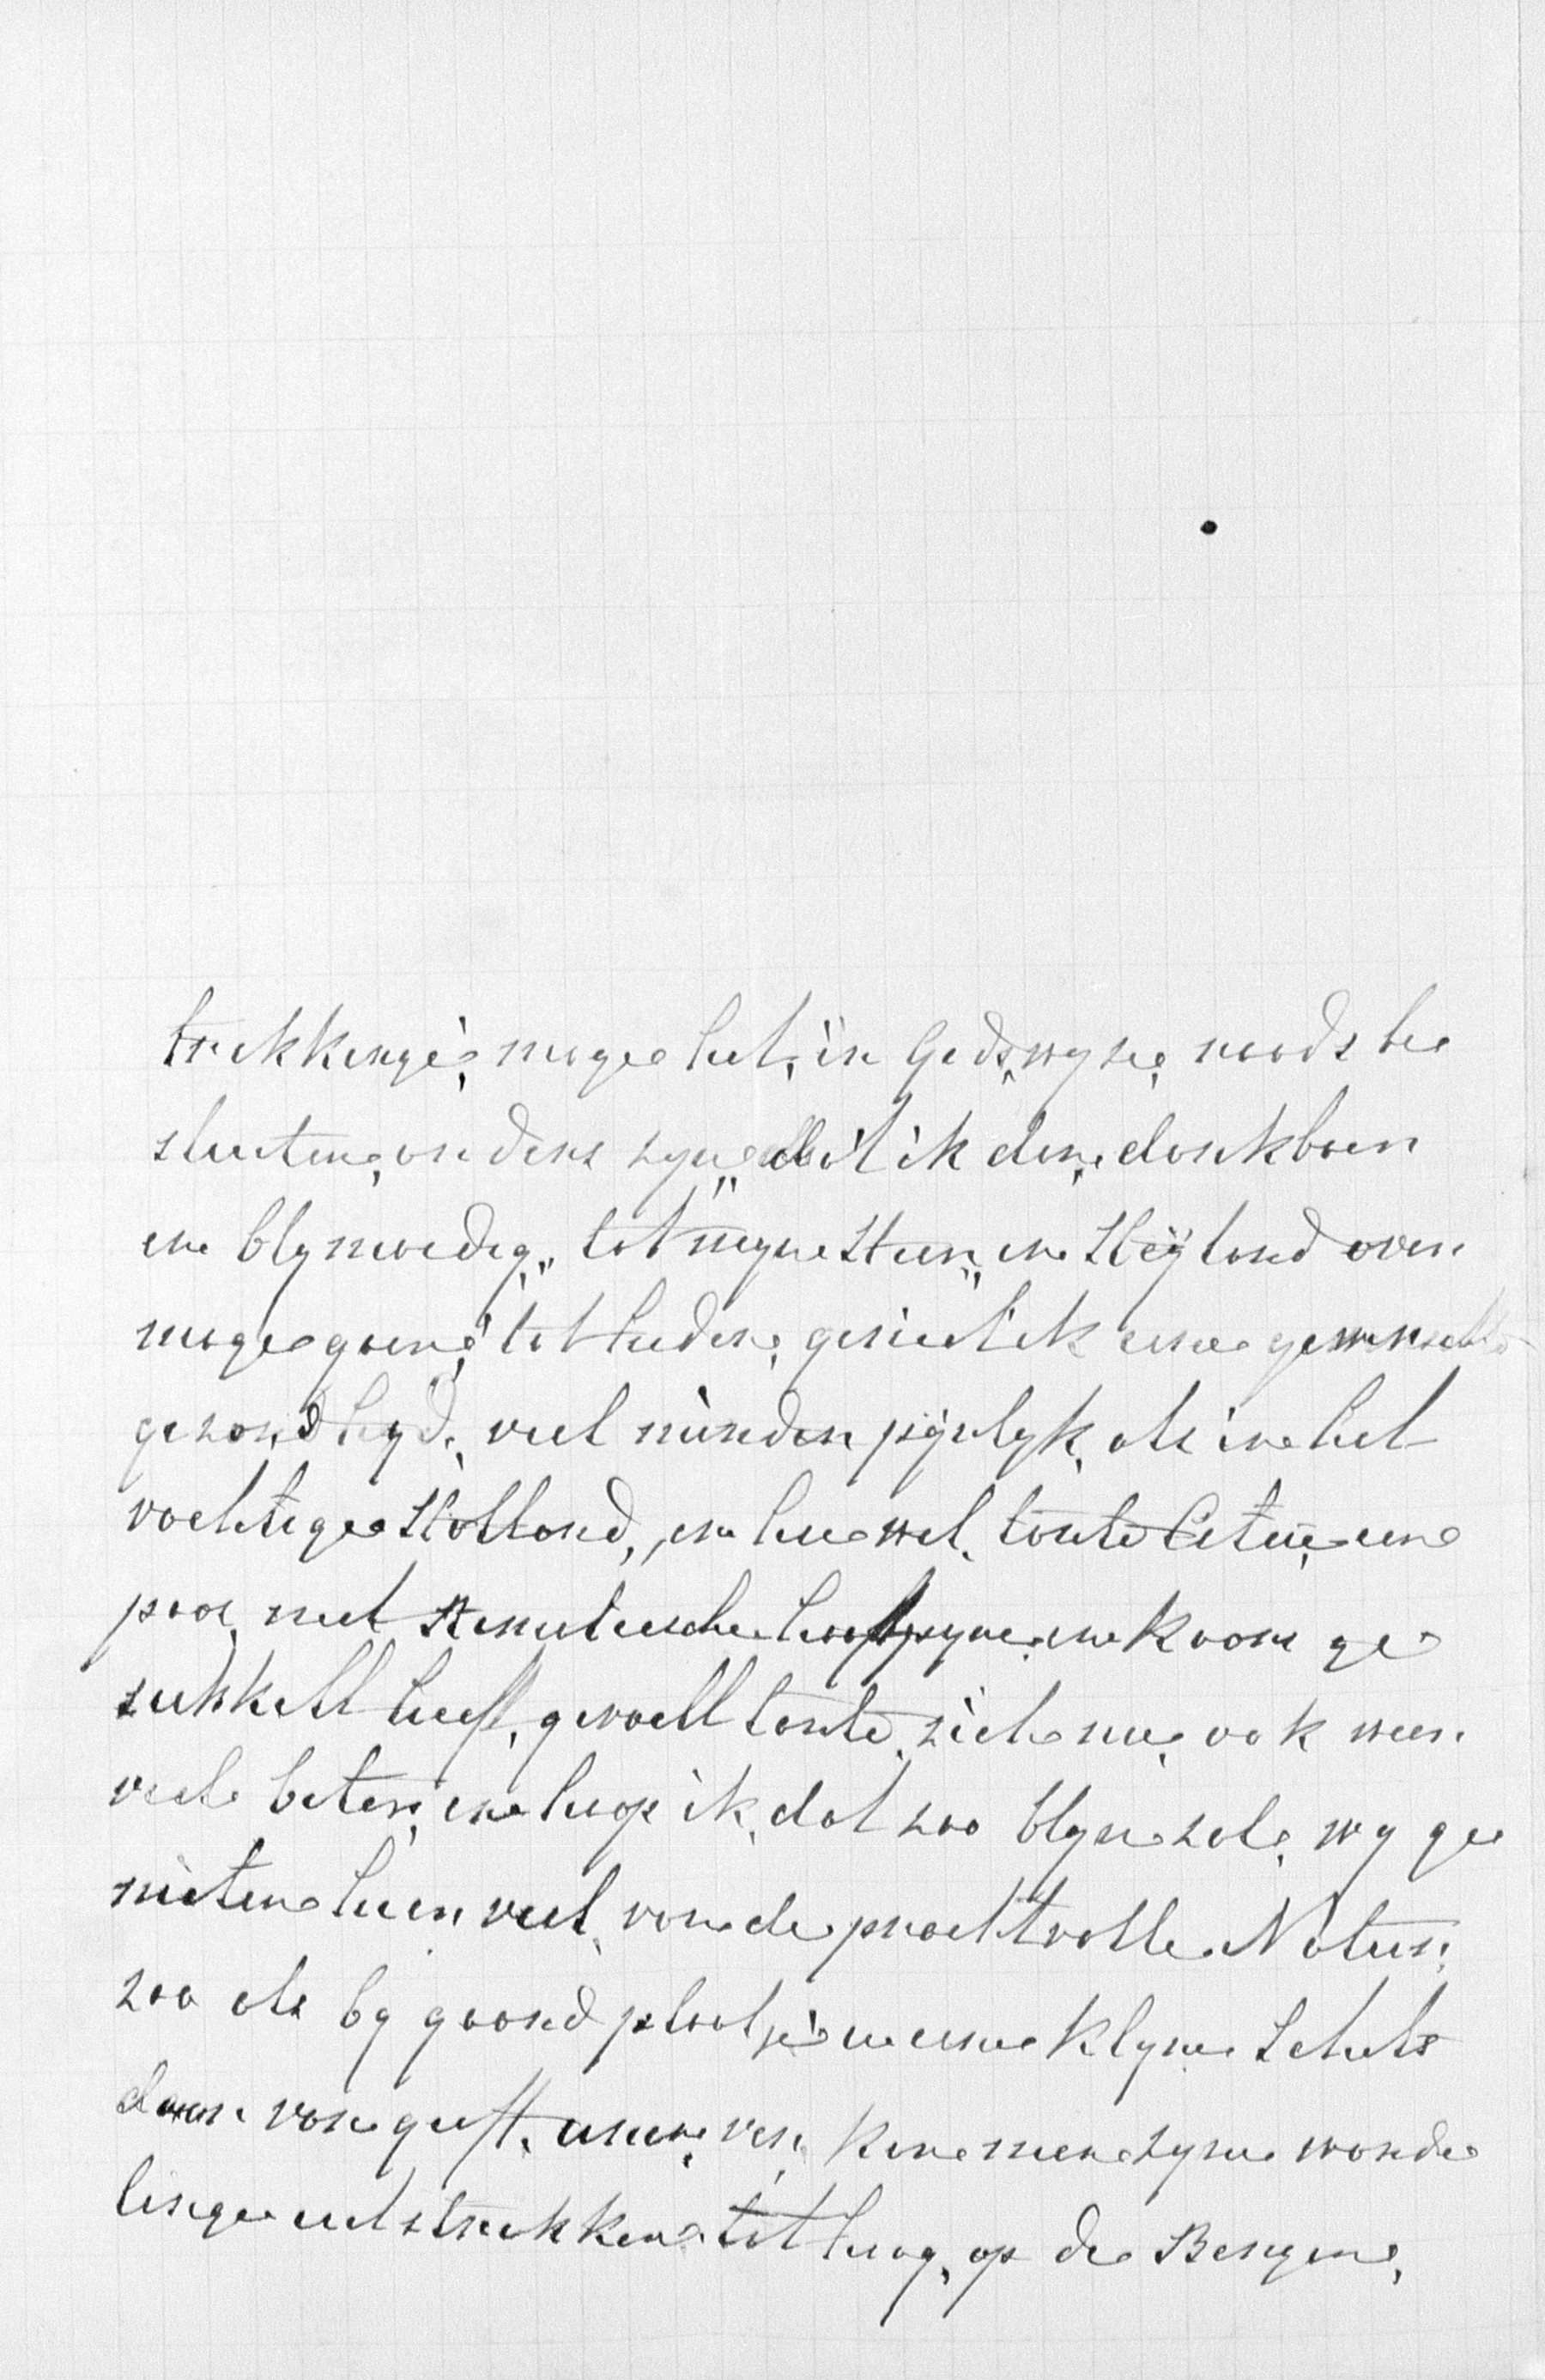 trekkinge, moge het, in Gods, wyze, raads be
sluiten, anders zyn, dat ik dan, dankbaar
en blymoedig, tot myne Heer, en Heyland over
moge gaan, tot heden, geniet ik eene gewenschte
gezondheyd, veel minder pijnlyk, als in het
vochtige Holland, en hoewel, tante Cetie, een
paar met Hoofdpyne, en koors ge
sukkelt heeft, gevoelt tante, zich nu, ook weer
veel beter, en hoop ik, dat zoo blyve zal, wy ge
nieten hier veel, van de prachtvolle Natuur,
zoo als bygaand plaatje u eene klyne Schets
daar van geeft, uren, ver, kan men zyne wande
linge uitstrekken, tot hoog, op de Bergen,